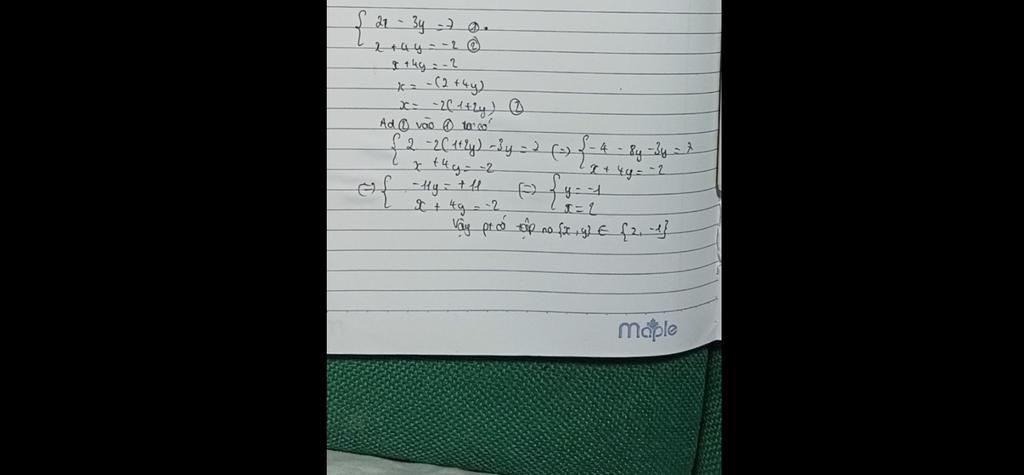 { 2x - 3y = 7 ①.
x + 4y = -2 ②
x + 4y = -2
x = -(2 + 4y)
x = -2(1+2y) ②
Ad ② vào ① ta có
{ 2 -2(1+2y) -3y = 7 (=) { -4 - 8y -3y = 7
x + 4y = -2 x + 4y = -2
(=) { -11y = +11 (=) { y = -1
x + 4y = -2 x = 2
Vậy pt có tập no {x, y} ∈ {2, -1}
maple